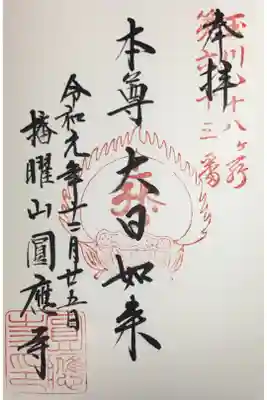 奉拝
玉川八十八ヶ所
十三番
本尊 大日如来
令和元年十二月廿五日
播曜山圓應寺